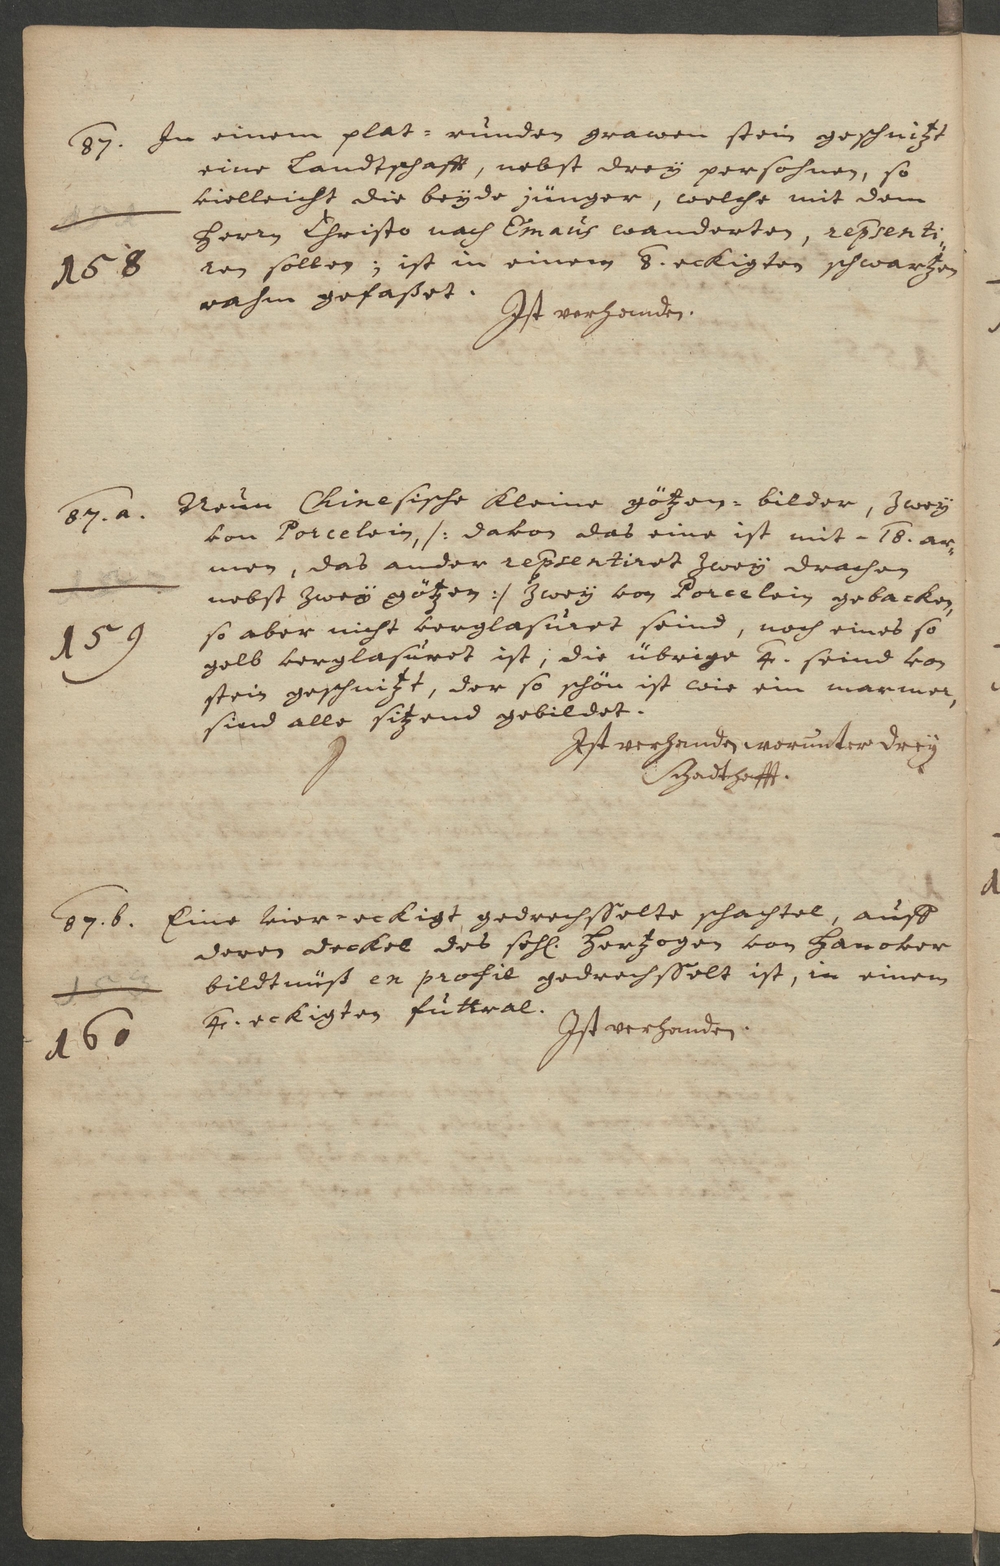 87. In einem plat=runden grawen stein geschnitzt
eine Landtschafft, nebst dreÿ persohnen, so
vielleicht die beÿde jünger, welche mit dem
Herrn Christo nach Emaus wanderten, repsenti,,
158
ren sollen; ist in einem 8. eckigten schwartzen
rahm gefaßet.
Ist verhanden.
87.a. Neun Chinesische kleine götzen=bilder, zweÿ
von Porcelein, /: davon das eine ist mit 18. ar=
men, das ander repsentiret zweÿ drachen
nebst zweÿ götzen :/ zweÿ von Porcelein gebacken,
159
so aber nicht verglasuret seind, noch eines so
gelb verglasuret ist; die übrige 4. seind von
stein geschnitzt, der so schön ist wie ein marmer,
sind alle sitzend gebildet.
Ist verhanden worunter dreÿ
schadthafft.
87.b. Eine vier=eckigt gedrechsselte schachtel, auff
deren deckel des sehl. Hertzogen von Hanover
bildtnüß en profil gedrechsselt ist, in einem
160
4. eckigten futtral.
Ist verhanden.